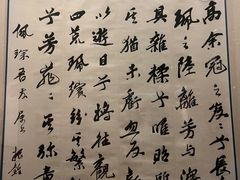 高余冠之岌々兮長
珮之陸離芳與澤
其雜糅兮唯昭質
其猶未虧忽反顧
以遊目兮將往觀
四荒珮繽紛其繁
兮芳菲々其弥章
佩琛